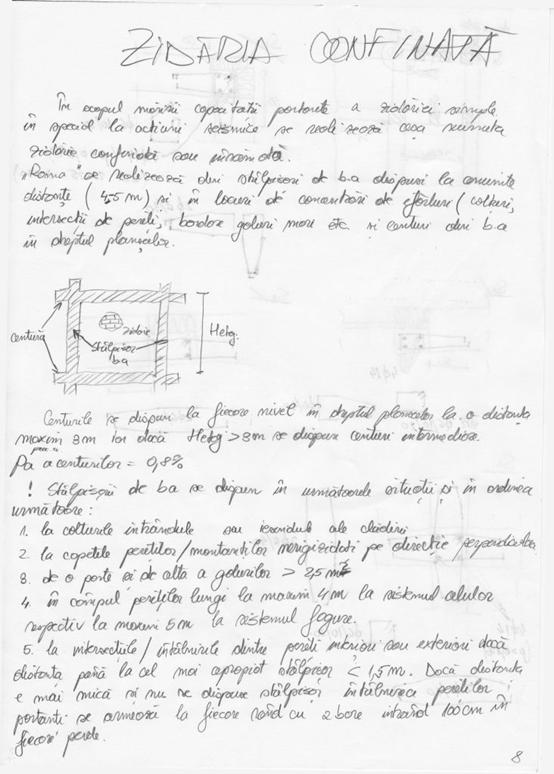 ZIDĂRIA CONFINATĂ
În scopul măririi capacității portante a zidăriei simple
în special la acțiuni seismice se realizează așa numita
zidărie confinată sau înrămată.
"Rama" se realizează din stâlpișori de ba dispuși la anumite
distanțe (4,5m) și în locuri de concentrări de eforturi (colțuri,
intersecții de pereți, bordare goluri mari etc. și centuri din b.a
în dreptul planșeelor.
centură
zidărie
stâlpișor
ba
Hetg.
Centurile se dispun la fiecare nivel în dreptul planșeelor la o distanța
maxim 3m iar dacă Hetg > 3m se dispun centuri intermediare.
a centurilor = 0,8%
! Stâlpișorii de ba se dispun în următoarele situații și în ordinea
următoare:
1. la colturile intrândule sau ieșindule ale clădirii
2. la capetele pereților/montanților nerigidizați pe direcție perpendiculară
3. de o parte și de alta a golurilor > 2,5 m²
4. în câmpul pereților lungi la maxim 4m la sistemul celular
respectiv la maxim 5m la sistemul fagure.
5. la intersecțiile/întâlnirile dintre pereți interiori sau exteriori dacă
distanța până la cel mai apropiat stâlpișor < 1,5m. Dacă distanța
e mai mică și nu se dispune stâlpișor întâlnirea pereților
portanți se armează la fiecare rând cu 2 bare intrând 100cm în
fiecare perete.
8